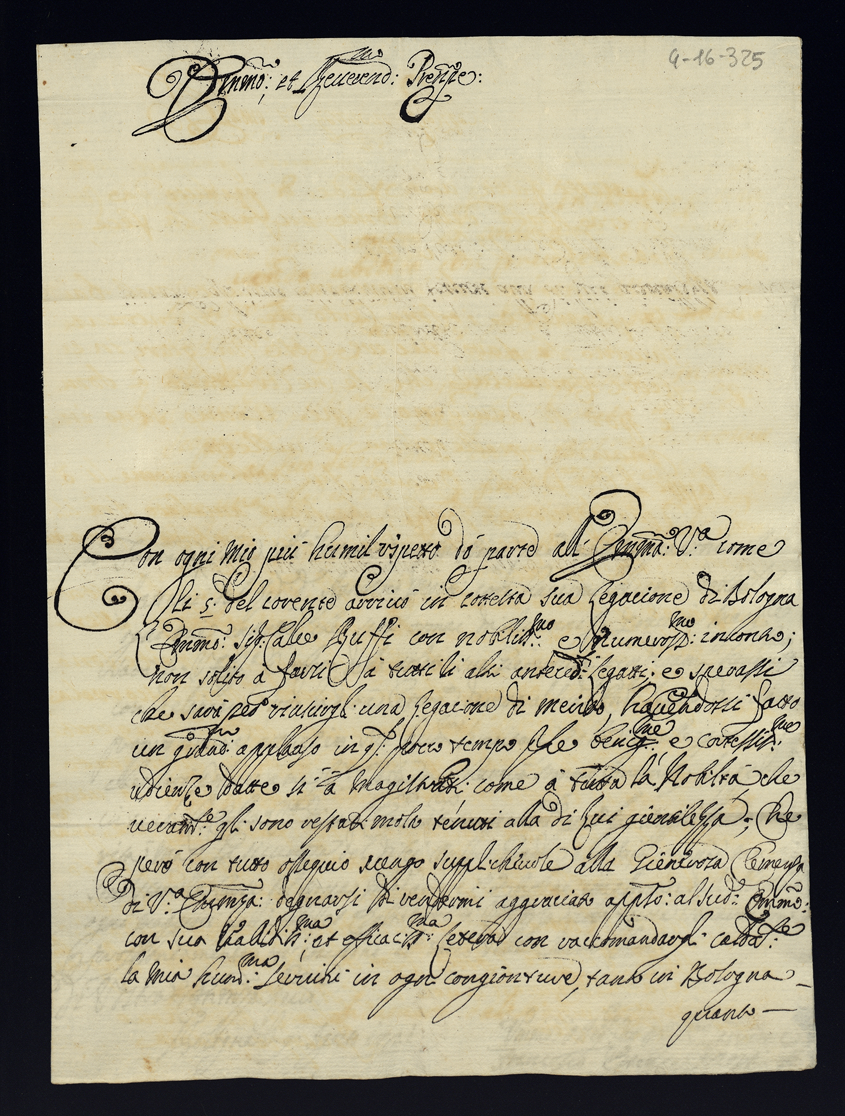 4-16-325
Emmõ: et Reverend:mo Prenpe:
Con ogni mio più humil rispetto dò parte all' Emmã: V:a come
lli 5: del corente arrivò in cotesta sua Legacione di Bologna
Emmõ: Sig: Cale Ruffi con nobiliss:mo e Numeross:mo incontro;
non solito à farsi à tutti li altri anteced: legati: e sperassi
che sarà riuscirgli una Legacione di merito, havendossi fatto
un grand: applauso in q: poco tempo che e cortessiss:me
udienze datte si à Magistrati come à tutta la Nobiltà che
gl: sono restati molto tenuti alla di Lui gientilessa; che
però con tutto ossequio vengo supplichevole alla Gienerosa Clemenza
di V:a Emmza: degnarsi di rendermi aggraciato appsto: al sud: Emmõ:
con sua et efficaciss:ma Letera con raccomandargli caldam:te
la mia hum:ma Servitù in ogni congionture, tanto in Bologna
quanto